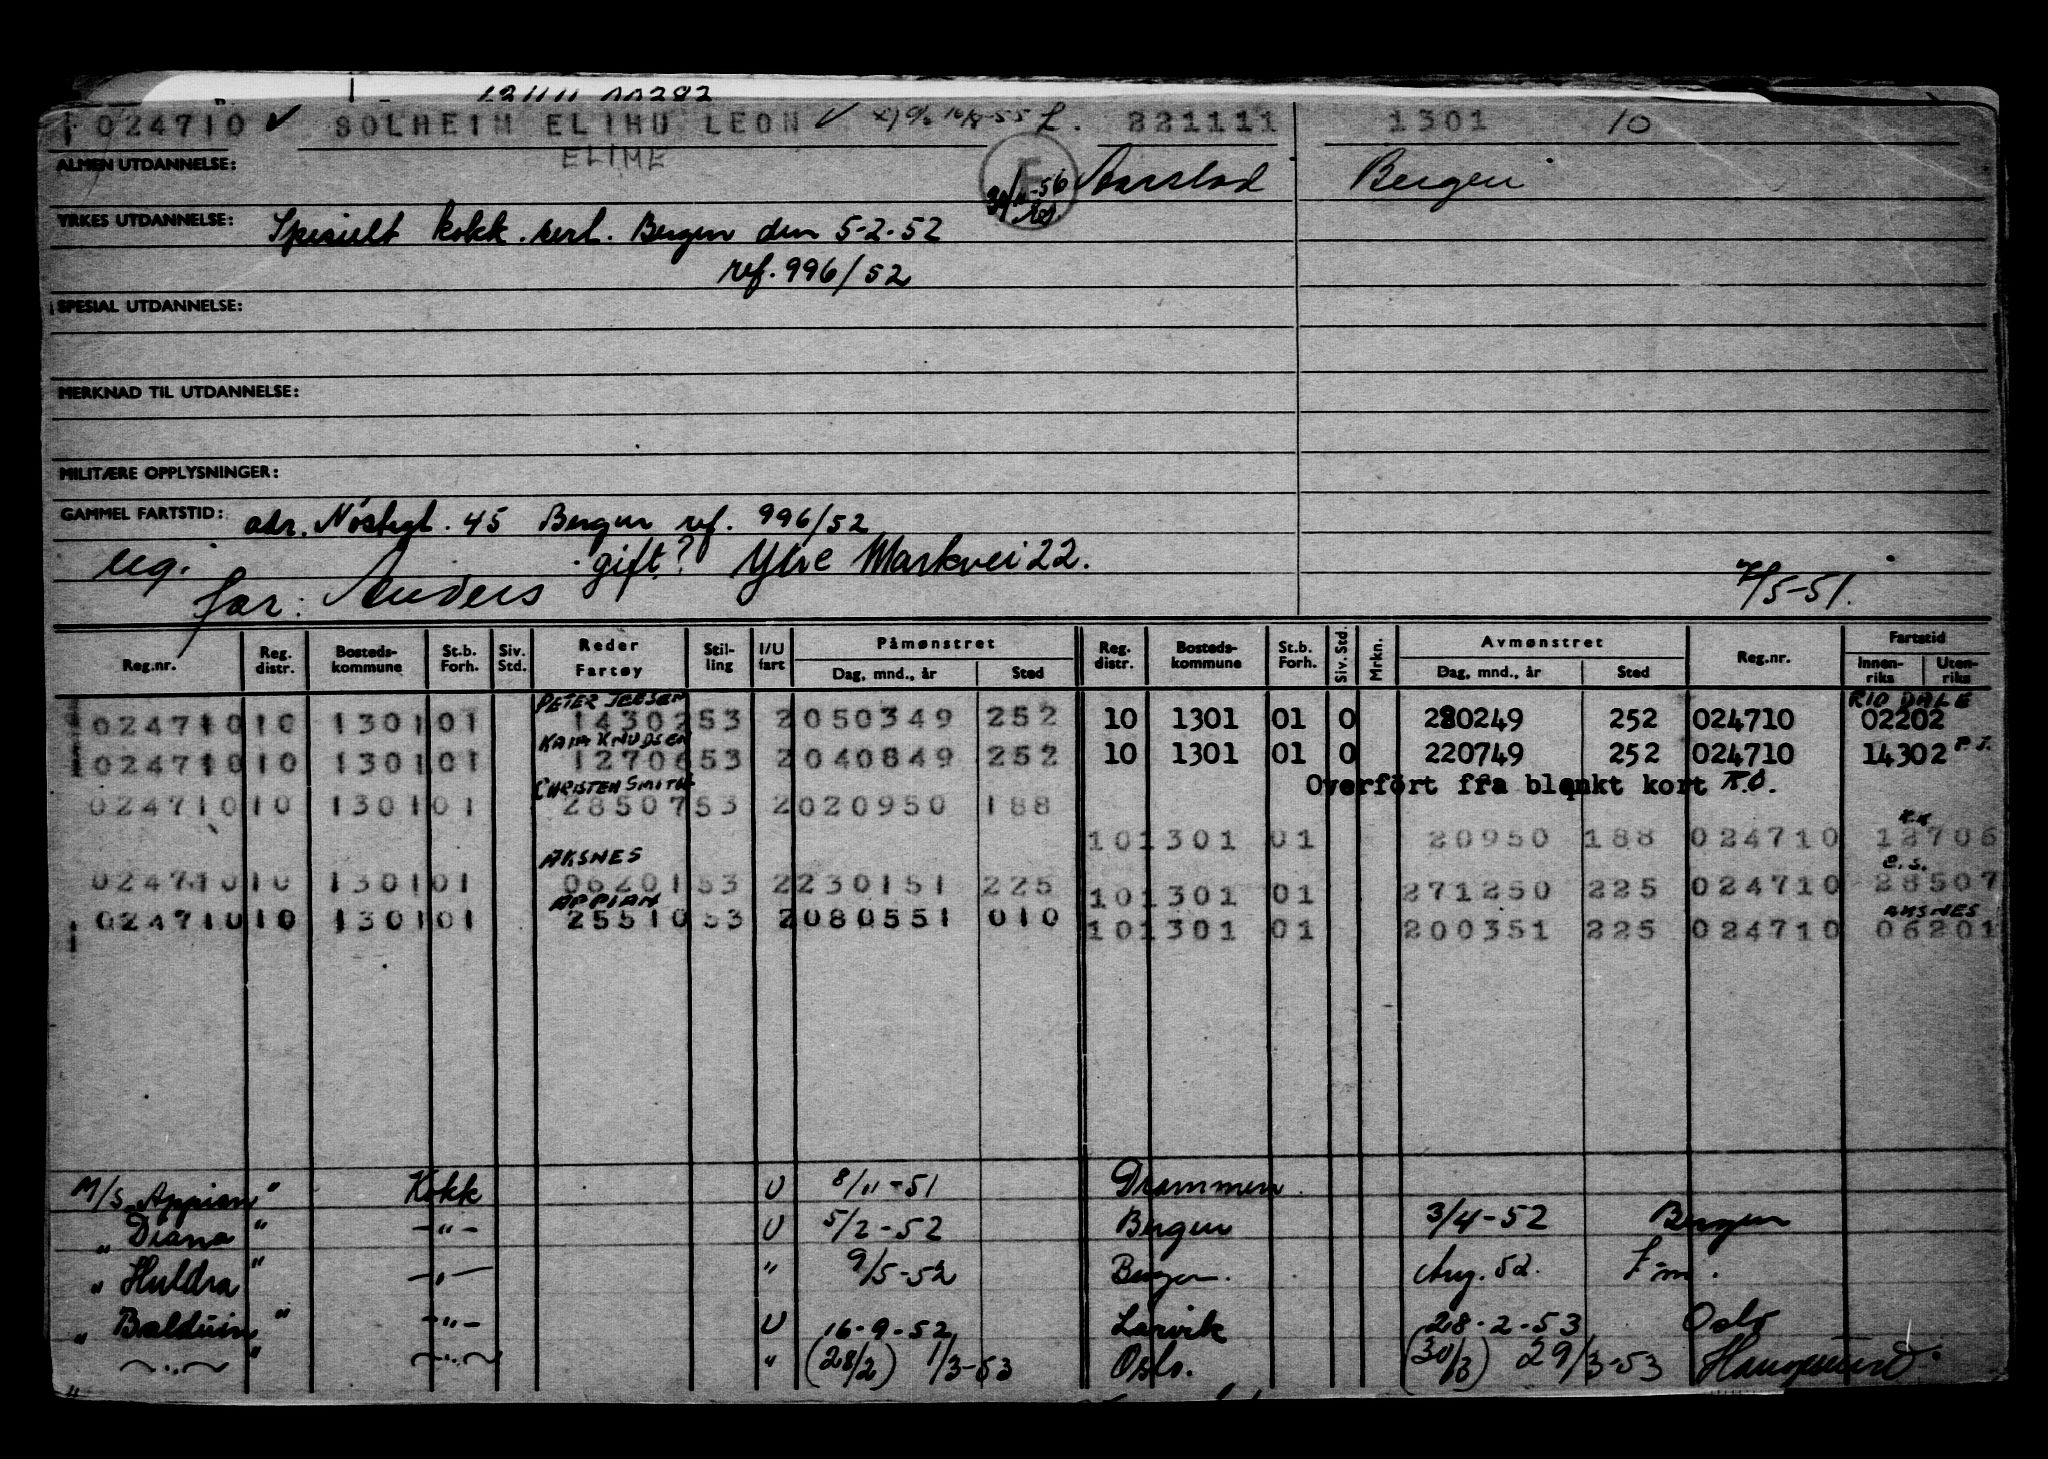 024710 SOLHEIM ELIHU LEON 221111 1301 10
ELIME
ALMEN UTDANNELSE: Aarstad Bergen
YRKES UTDANNELSE: Spesielt kokk.sert. Bergen den 5-2-52
ref. 996/52
SPESIAL UTDANNELSE:
MERKNAD TIL UTDANNELSE:
MILITÆRE OPPLYSNINGER:
GAMMEL FARTSTID: adr. Nöstegt. 45 Bergen ref. 996/52
ug. gift? Ytre Markvei 22.
far: Anders 7/5-51.
Reg.nr. Reg. distr. Bosteds-kommune St.b. Forh. Siv. Std. Reder Fartøy Stil-ling I/U fart Påmønstret Dag, mnd., år Sted Reg. distr. Bosteds-kommune St.b. Forh. Siv. Std. Mrkn. Avmønstret Dag, mnd., år Sted Reg.nr. Fartstid Innen-riks Uten-riks
PETER JEBSEN RIO DALE
024710 10 1301 01 14302 53 2 050349 252 10 1301 01 0 280249 252 024710 02202
KAIA KNUDSEN
024710 10 1301 01 12706 53 2 040849 252 10 1301 01 0 220749 252 024710 14302 P.J.
CHRISTEN SMITH Overfört fra blankt kort R.O.
024710 10 1301 01 28507 53 2 020950 188
K.K.
10 1301 01 20950 188 024710 12706
AKSNES e.s.
024710 10 1301 01 06201 53 2 230151 225 10 1301 01 271250 225 024710 28507
APPIAN AKSNES
024710 10 1301 01 25510 53 2 080551 010 10 1301 01 200351 225 024710 06201
M/S "Appian" Kokk U 8/11-51 Drammen
" Diana " -"- U 5/2-52 Bergen 3/4-52 Bergen
" Huldra " -"- " 9/5-52 Bergen. Aug. 52.
" Balduin " -"- U 16-9-52 Larvik 28-2-53 Oslo
" -"- " -"- " (28/2) 1/3-53 Oslo. (30/3) 29/3-53 Haugesund.